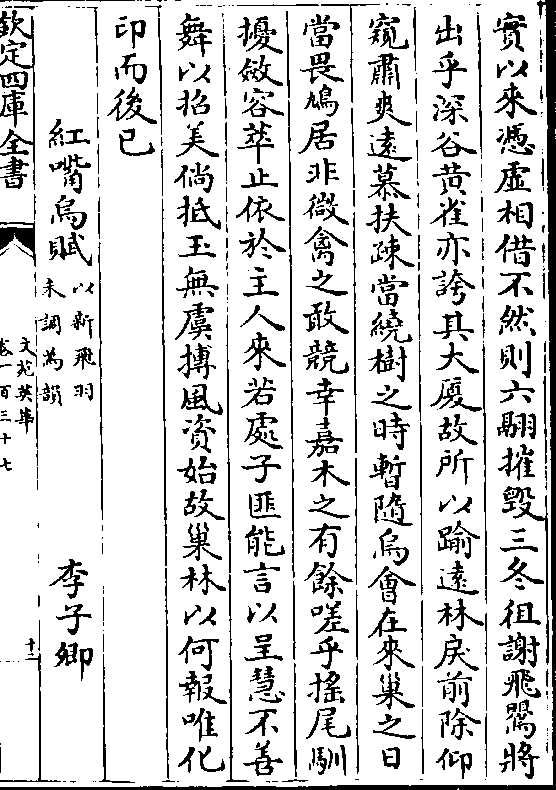 實以來憑虛相借不然則六翮摧毀三冬徂謝飛鶚將
出乎深谷黄雀亦誇其大厦故所以踰遠林戾前除仰
窺肅爽遠慕扶疎當繞樹之時暫隨烏會在來巢之日
當畏鳩居非微禽之敢競幸嘉木之有餘嗟乎搖尾馴
擾斂容萃止依於主人來若處子匪能言以呈慧不善
舞以招美倘抵玉無虞摶風資始故巢林以何報唯化
印而後已
紅嘴烏賦以新飛羽未調為韻 李子卿
欽定四庫全書
文苑英華
卷一百三十七
十二